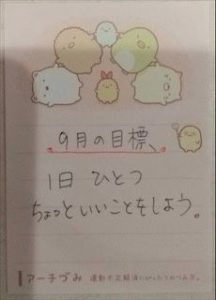 9月の目標、
1日 ひとつ
ちょっといいことをしよう。
アーチづみ